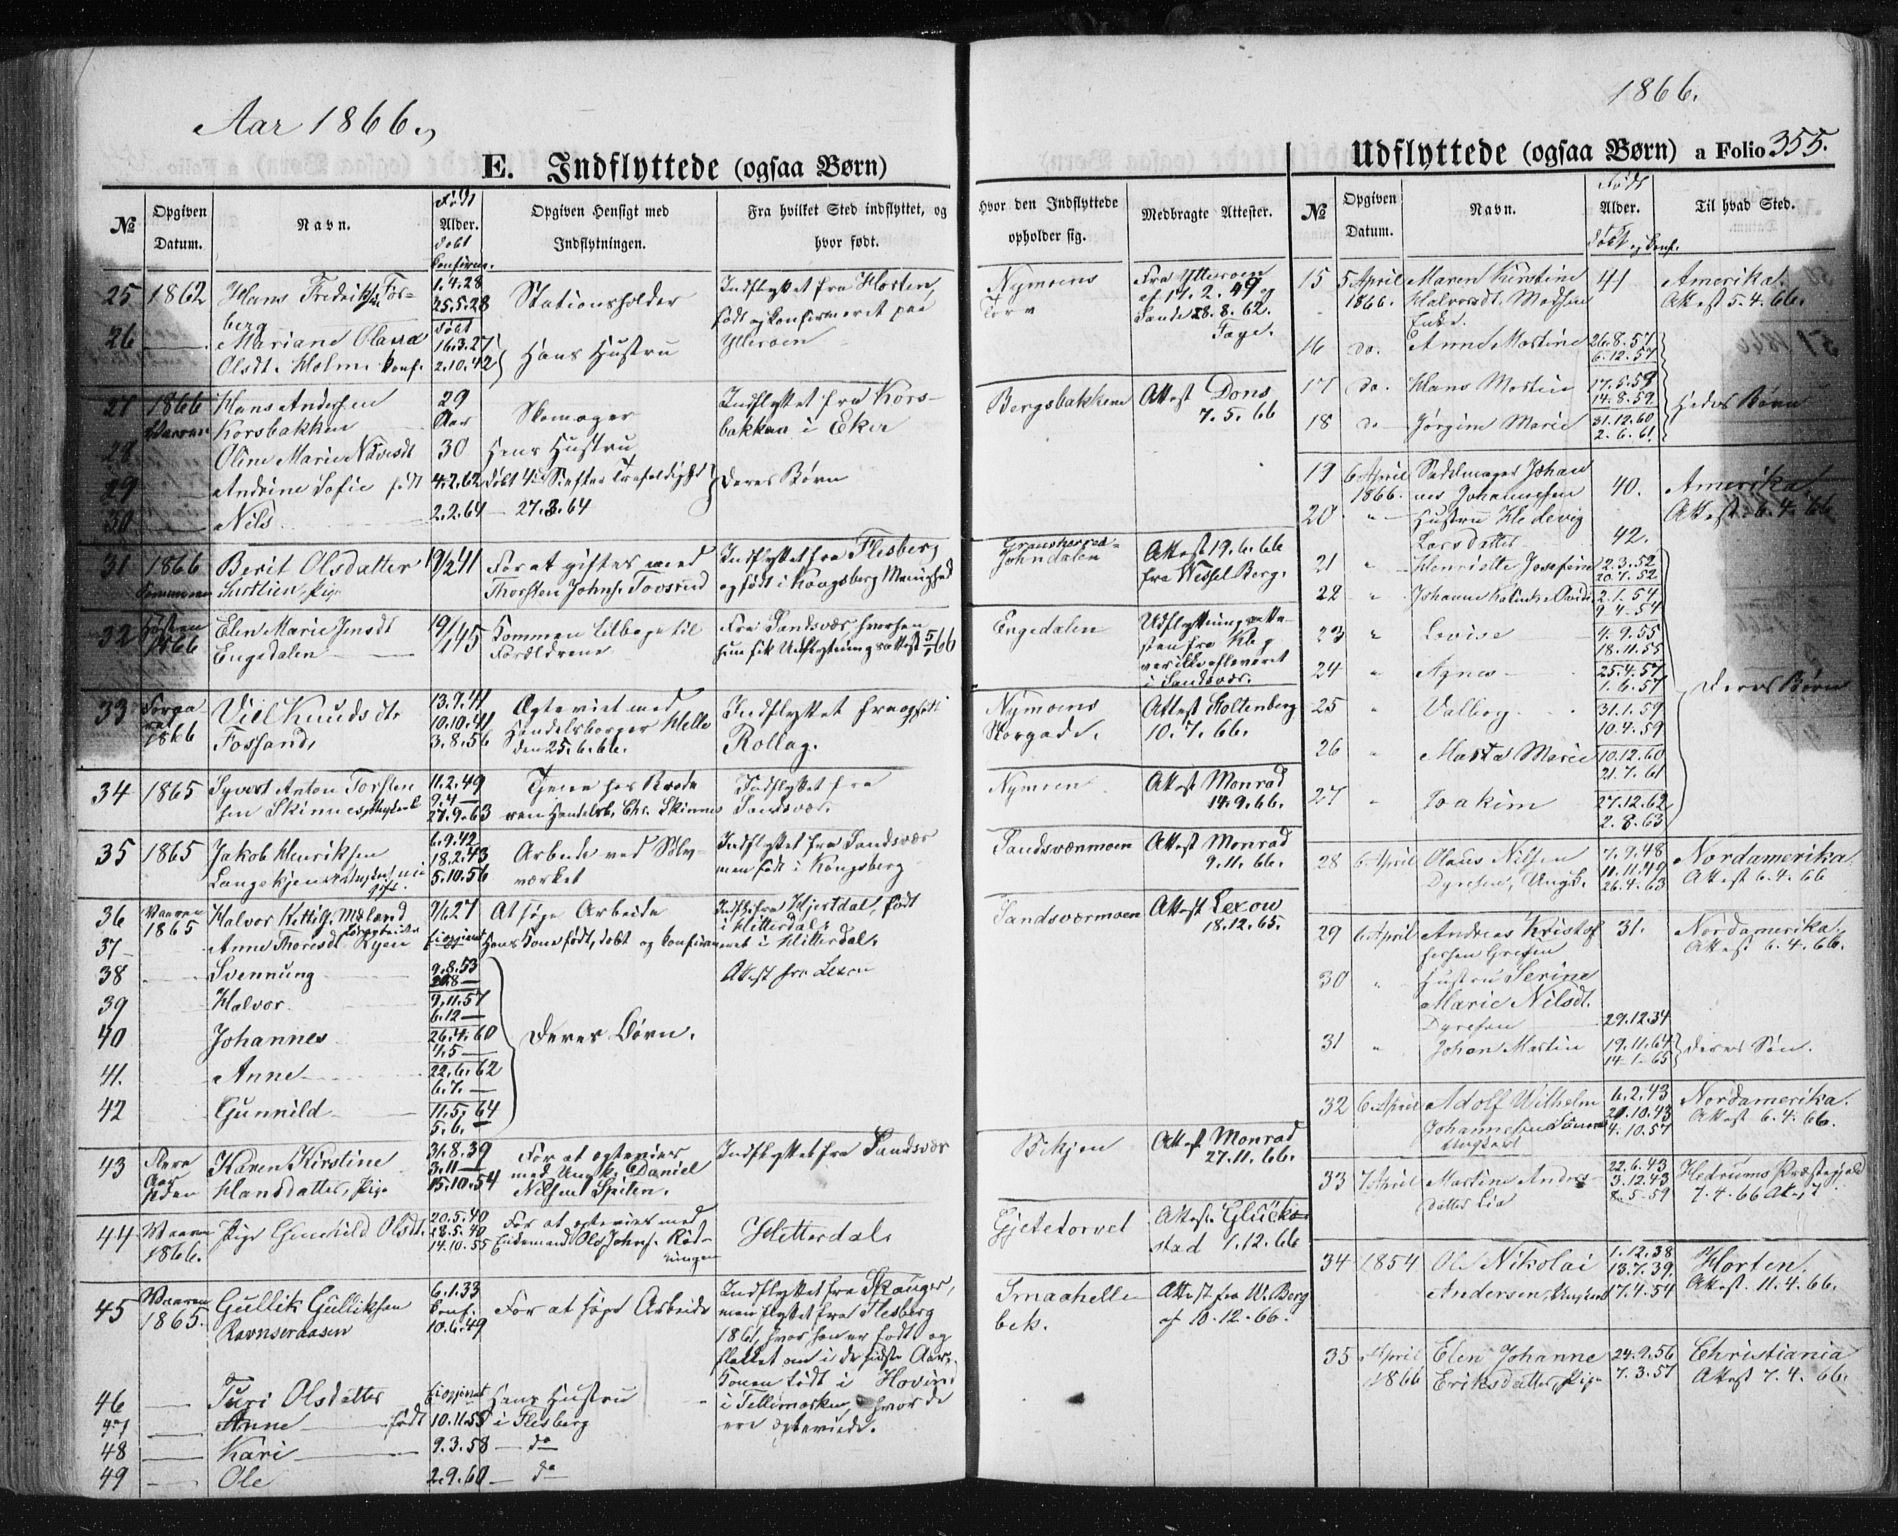 Aar 1866.
1866.
E. Indflyttede (ogsaa Børn)
Udflyttede (ogsaa Børn) a Folio 355.
№
Opgiven Datum.
Navn.
Født
Alder.
døbt
Opgiven Hensigt med Indflytningen.
Fra hvilket Sted indflyttet, og hvor født.
Hvor den Indflyttede opholder sig.
Medbragte Attester.
25 1862 Hans Fredrik
berg
1.4.28
25.5.28
Stationsholder
Indflyttet fra Horten,
født og konfirmeret paa
Ytterøen
Nymoens
Torv
Fra Ytterøen
af 17.2.49 og
Sande 28.8.62.
26 Mariane Olava
Olsdt. Holm konf.
døbt
16.3.27
2.10.42
Hans Hustru
27 1866 Hans Andersen
Korsbakken
29
Aar
Skomager
Indflyttet fra Kors-
bakken i Eker
Bergsbakken
Attest Dons
7.5.66
28 Oline Marie
30
Hans Hustru
29 Andrine Sofie født
4.2.62
Deres Børn
30 Nils
2.2.64 — 27.3.64
31 1866
Sommeren
Berit Olsdatter
pige
19/2 41
For at giftes med
Thorsten Johns.
Indflyttet fra Flesberg
og født i Kongsberg Menighed
Johndalen
Attest 19.6.66
fra Wessel Berg.
32 Høsten
1866
Elen Marie Jensdt
Engedalen
Kommen tilbage til
Forældrene
Fra Sandsvær, hvorhen
hun fik Udflytningsattest
Engedalen
i Sandsvær.
33
1866
Knudsdtr
Fossand,
13.9.41
10.10.41
3.8.56
Ægteviet med
Handelsborger Helle
den 25.6.66.
Indflyttet fra og født
Rollag.
Nymoens
Storgade.
Attest Stoltenberg
10.7.66.
34 1865 Syvert Anton Torsten
sen Skinnes, Ungkarl
11.2.49
9.4 —
27.9.63
Tjener hos Brode
ren Handelsb. Chr. Skinnes
Indflyttet fra
Sandsvær.
Nymoen
Attest Monrad
14.9.66.
35 1865 Jakob Henriksen
6.9.42
18.2.43
5.10.56
Arbeide ved Sølv-
værket
Indflyttet fra Sandsvær
men født i Kongsberg
Sandsværmoen
Attest Monrad
9.11.66.
36 Vaaren
1865
Halvor Kittils. Mæland
At søge Arbeide
Indfl. fra Hjertdal, født
i Hitterdal.
Sandsværmoen
Attest Lexow
18.12.65.
37 Anne Thoresdt.
Hans Kone født, døbt og konfirme
ret i Hitterdal.
38 Svennung
9.8.53
Attest fra Lexow
39 Halvor
9.11.57
6.12 —
40 Johannes
26.4.60
Deres Børn.
41. Anne
22.6.62
6.7. —
42 Gunnild
11.5.64
5.6. —
43
Karen Kirstine
Hansdatter, pige
31.8.39
3.11 —
15.10.54
For at ægtevies
med Ungk. Daniel
Nilsen
Indflyttet fra Sandsvær
Bekjen
Attest Monrad
27.11.66.
44 Vaaren
1866.
Pige Gunhild Olsdt.
20.5.40
28.5.40
14.10.55
For at ægtevies med
Enkemand Ole Johns.
Hitterdal.
Gjetetorvet
Attest Glück-
stad 1.12.66
45 Vaaren
1865.
Gullik Gulliksen
Ravnsaraasen
6.1.33
konf.
10.6.49
For at søge Arbeide
Indflyttet fra Skauger,
men flyttet fra Flesberg
1861, hvor han er født og
flakket om i de sidste Aar,
Konen født i Hovin
i Tellemarken, hvor de
ere ægteviede.
Smaahelle
bek.
Attest fra W. Berg
af 10.12.66.
46 — Turi Olsdatter
Hans Hustru
47 — Anne — født 10.11.55 i Flesberg
48 — Kari — 9.3.58 — do
49 — Ole 2.9.60 — do
№
Opgiven Datum.
Navn.
Født
Alder.
Døbt og konf.
Til hvad Sted.
15 5 April
1866.
Maren Kirstine
Halvorsdt. Madsen
Enke.
41
Amerika.
Attest 5.4.66.
16 do. Anne Martine
26.8.57
6.12.57
17 do. Hans Martin
17.5.59
14.8.59
Hedes Børn
18 do Jørgine Marie
31.12.60
2.6.61
19 6 April
1866.
Sadelmager Johan
nes Johannesen
40.
Amerika.
Attest 6.4.66
20 " Hustru Hedevig
Larsdatter
42.
21 " Henriette Josefine
2.3.52
20.7.52
22 " Johanne
2.1.54
9.4.54
23 " Lovise
4.9.55
18.11.55
24 " Agnes
25.4.57
1.6.57
Deres Børn
25 " Valborg
31.1.59
10.4.59
26 " Marta Marie
10.12.60
21.7.61
27 " Joakim
27.12.62
2.8.63
28 6 April Olaus Nilsen
Dyresen, Ungk.
7.9.48
11.11.49
26.4.63
Nordamerika.
Attest 6.4.66
29 6 April Andreas Kristof
fersen
31.
Nordamerika.
Attest 6.4.66.
30 " Hustru Serine
Marie Nilsdt.
Dyresen
29.12.34
31 " Johan Martin
19.11.64
14.1.65
Deres Søn.
32 6 April Adolf Wilhelm
Johannesen
Ungkarl
6.2.43
4.10.57
Nordamerika.
Attest 6.4.66.
33 7 April Martine Andrs
datter Lia
22.6.43
3.12.43
8.5.59
Hedrums Præstegjeld
7.4.66 Attest
34 1854 Ole Nikolai
Andersen, Ungkarl
1.12.38
13.7.39
17.4.54
Horten.
Attest 11.4.66.
35 April
1866
Elen Johanne
Eriksdatter, pige
24.9.56
7.3.57
Christiania
Attest 7.4.66.